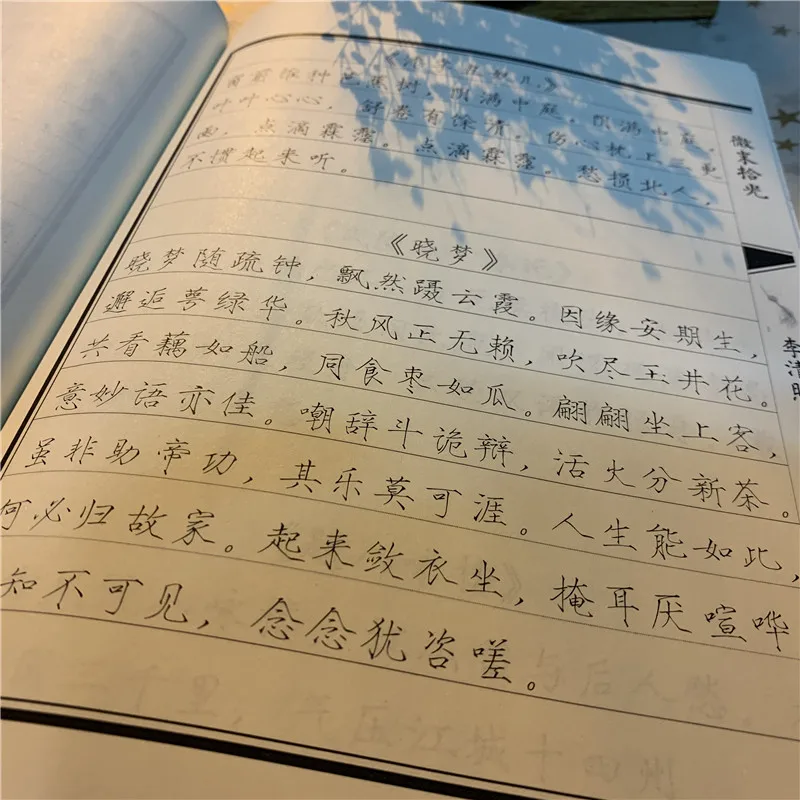 《添字丑奴儿》
窗前谁种芭蕉树,阴满中庭。阴满中庭。
叶叶心心,舒卷有馀清。伤心枕上三更
雨,点滴霖霪。点滴霖霪。愁损北人,
不惯起来听。
《晓梦》
晓梦随疏钟,飘然蹑云霞。因缘安期生,
邂逅萼绿华。秋风正无赖,吹尽玉井花。
共看藕如船,同食枣如瓜。翩翩坐上客,
意妙语亦佳。嘲辞斗诡辩,活火分新茶。
虽非助帝功,其乐莫可涯。人生能如此,
何必归故家。起来敛衣坐,掩耳厌喧哗
知不可见,念念犹咨嗟。
与后人愁。
里,气压江城十四州
微末拾光
李清照